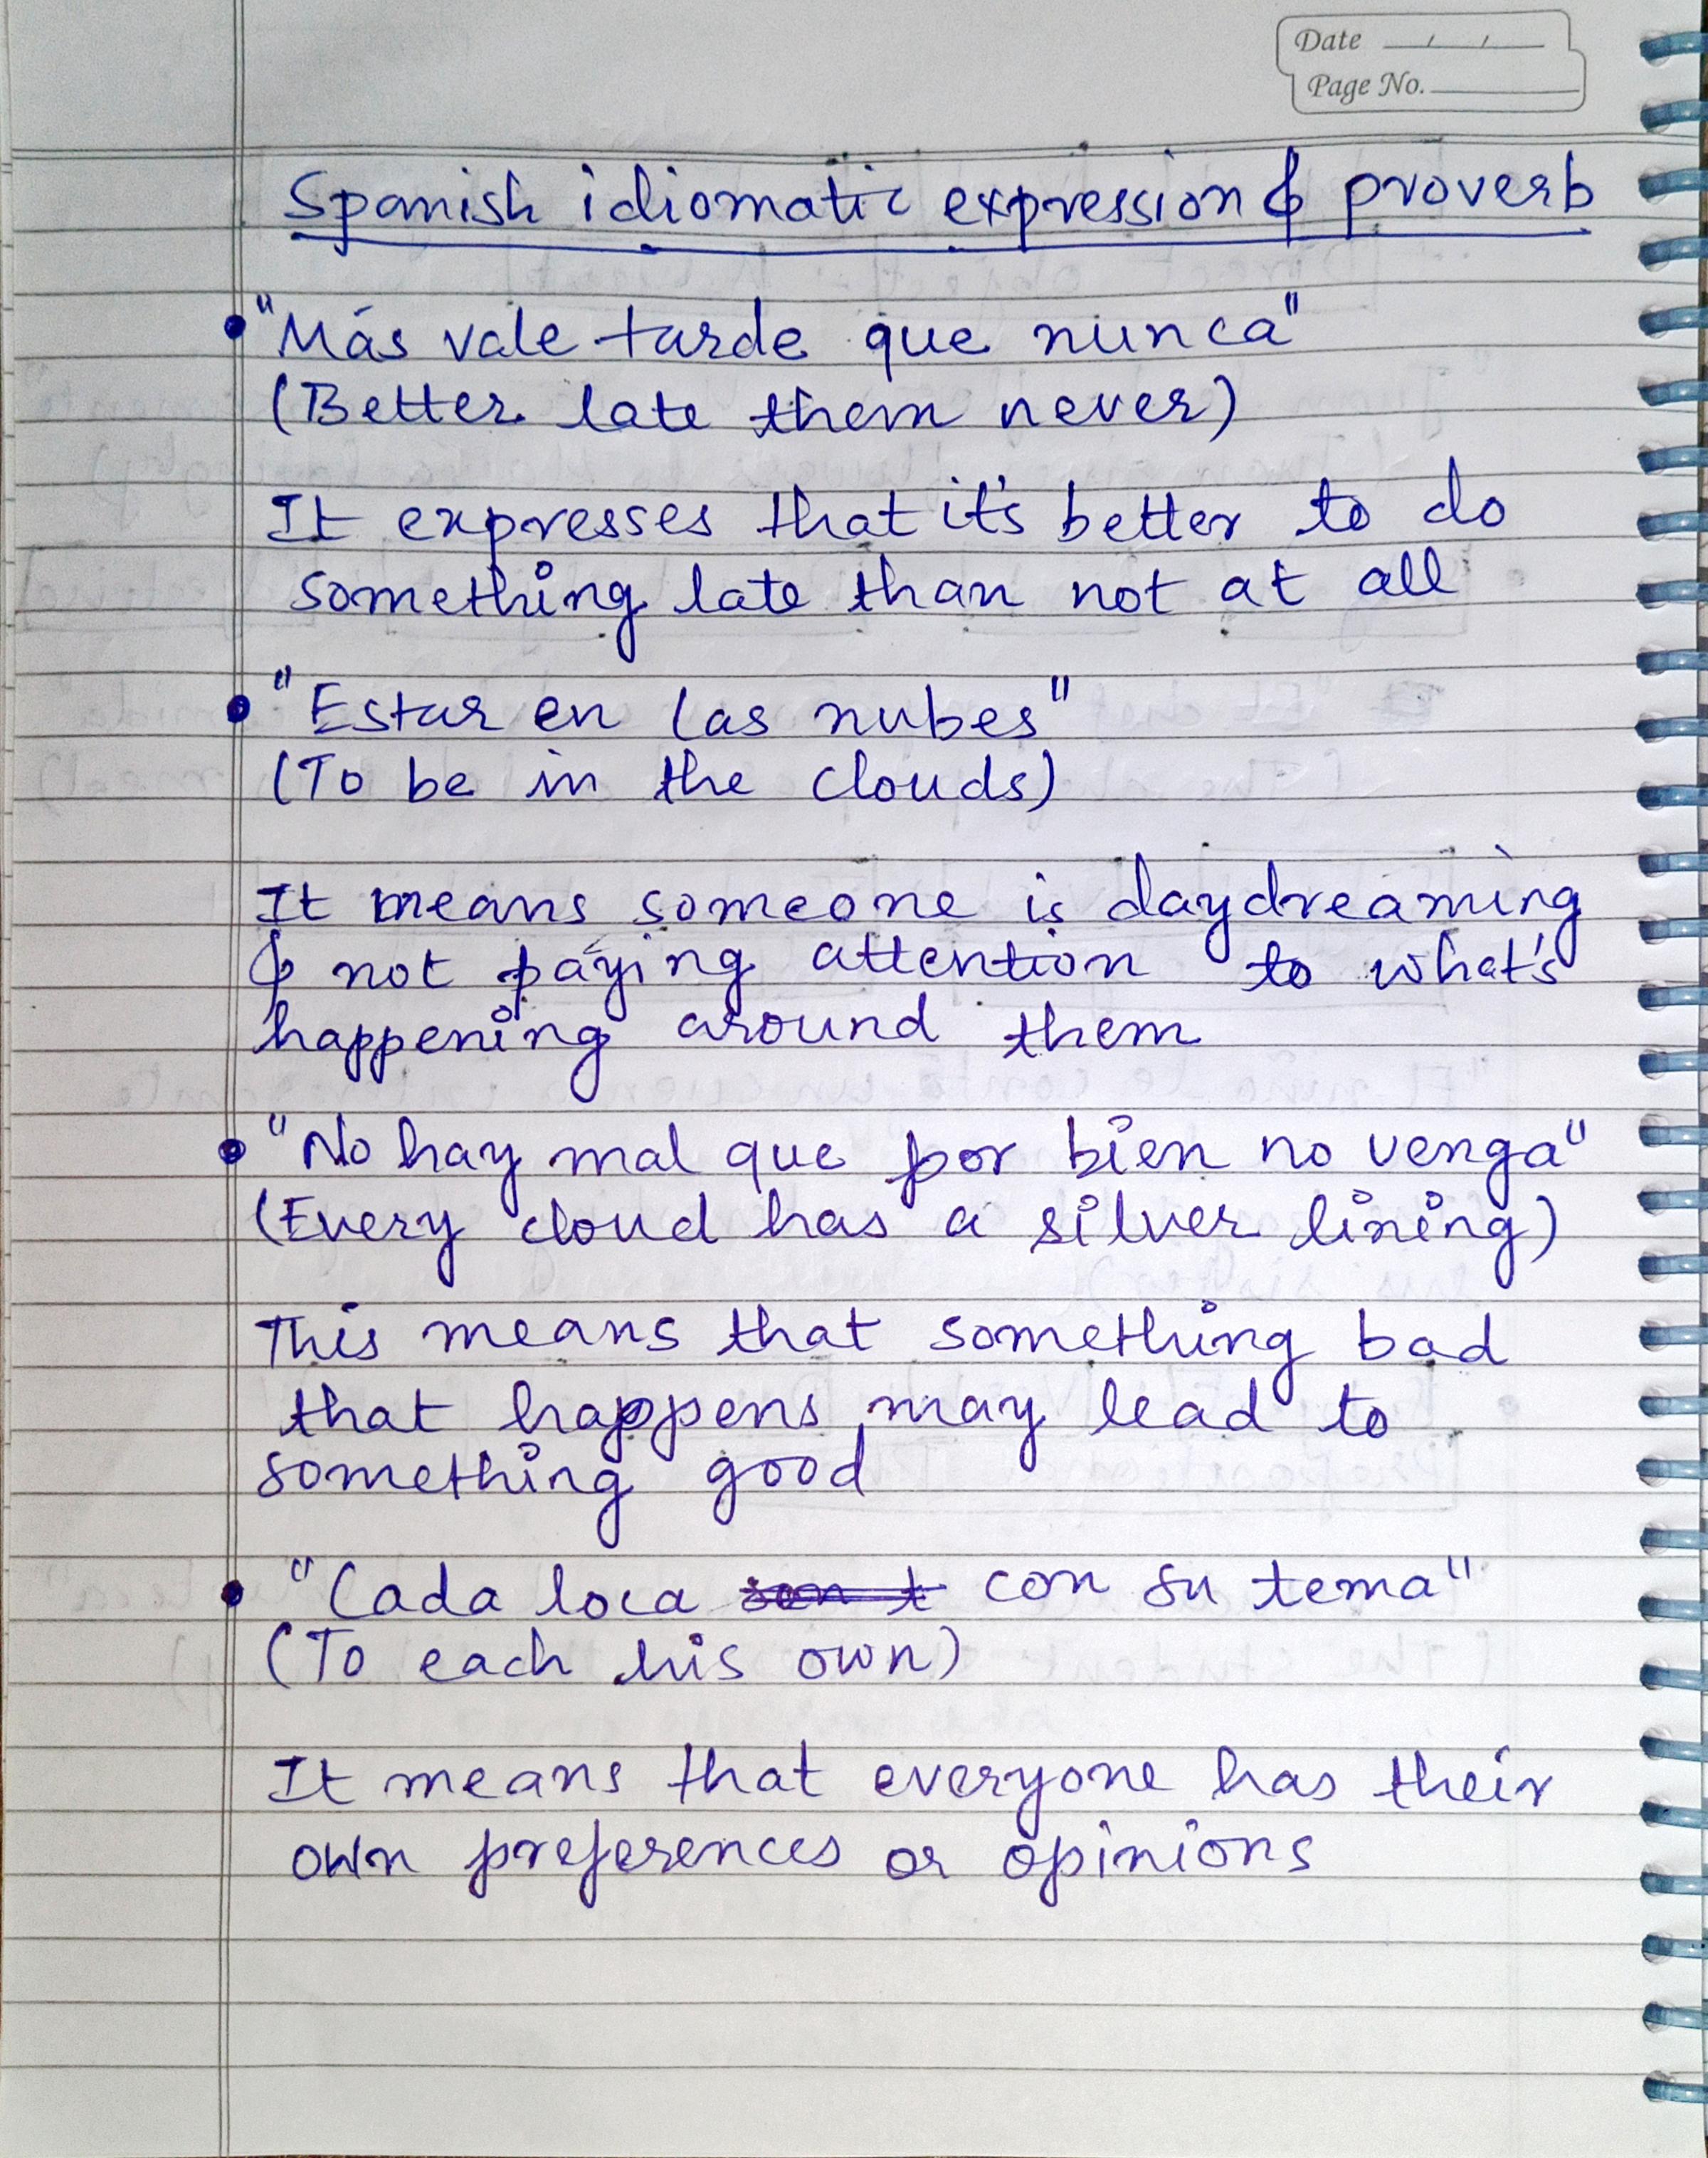 Date / /
Page No.
Spanish idiomatic expression & proverb
"Más vale tarde que nunca"
(Better late them never)
It expresses that it's better to do
something late than not at all
"Estar en las nubes"
(To be in the clouds)
It means someone is daydreaming
& not paying attention to what's
happening around them
"No hay mal que por bien no venga"
(Every cloud has a silver lining)
This means that something bad
that happens may lead to
something good
"Cada loca con su tema"
(To each his own)
It means that everyone has their
own preferences or opinions